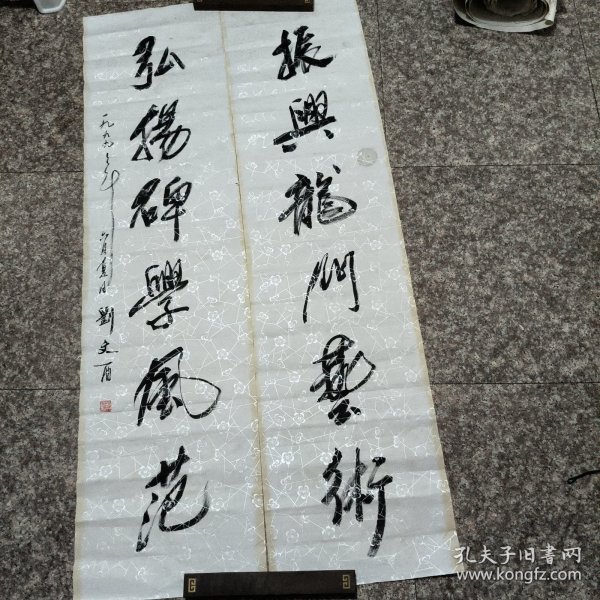 振興龍門藝術
弘揚碑學風范
一九九九年
六月
劉文酉
孔夫子旧书网
www.kongfz.com